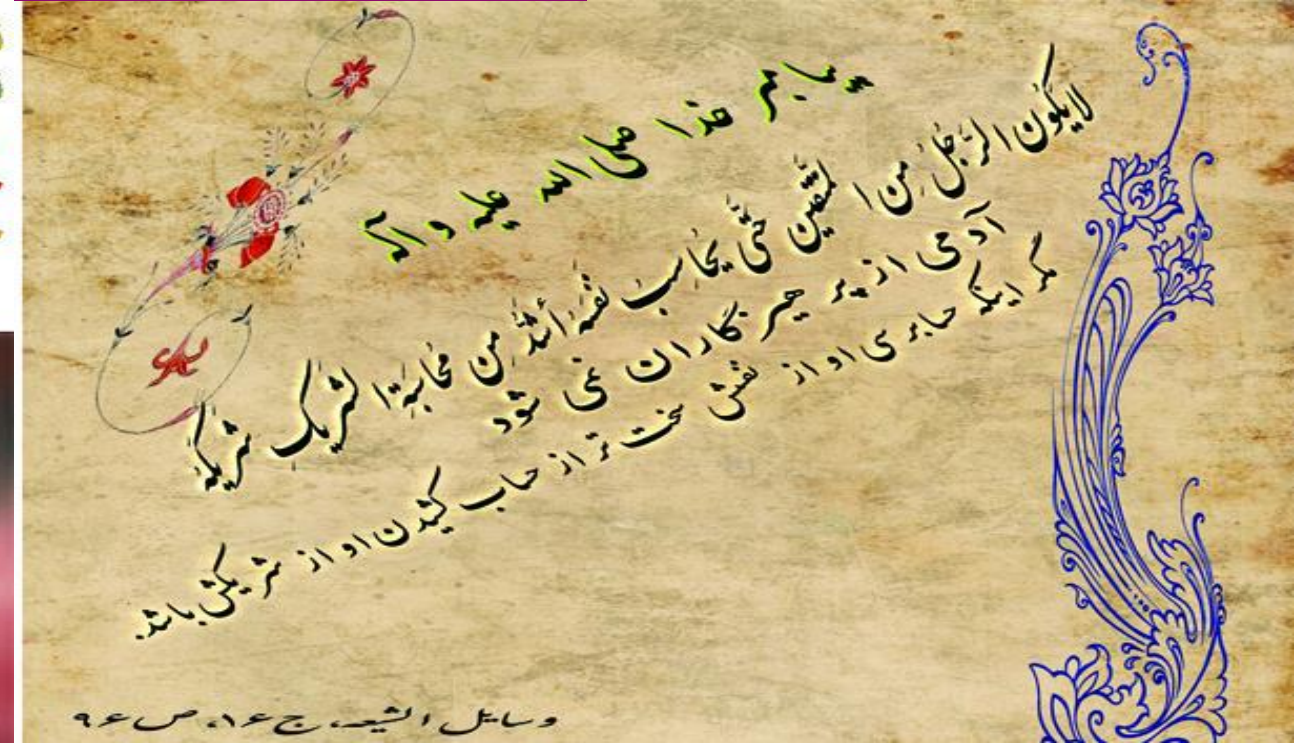 پیامبر خدا صلی الله علیه و آله
لایکون الرَّجُلُ مِنَ المُتَّقینَ حَتّی یُحاسِبَ نَفسَهُ أشَدَّ مِن مُحاسَبَةِ الشَّریکِ شَریکَهُ
آدمی از پرهیزگاران نمی شود
مگر اینکه حسابرسی او از نفسش سخت تر از حساب کشیدن او از شریکش باشد.
وسایل الشیعه، ج ۱۶، ص ۹۶